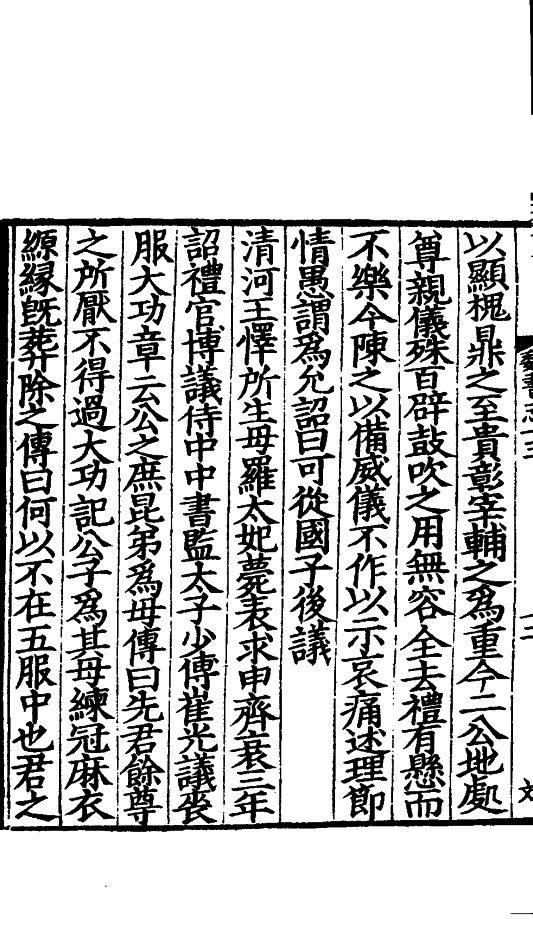 以顯槐鼎之至貴彰宰輔之爲重今二公地處
尊親儀殊百辟鼓吹之用無容全去禮有懸而
不樂今陳之以備威儀不作以示哀痛述理節
情愚謂爲允詔曰可從國子後議
清河王懌所生母羅太妃薨表求申齊衰三年
詔禮官博議侍中中書監太子少傅崔光議喪
服大功章云公之庶昆弟爲母傳曰先君餘尊
之所厭不得過大功記公子爲其母練冠麻衣
縓緣旣葬除之傳曰何以不在五服中也君之